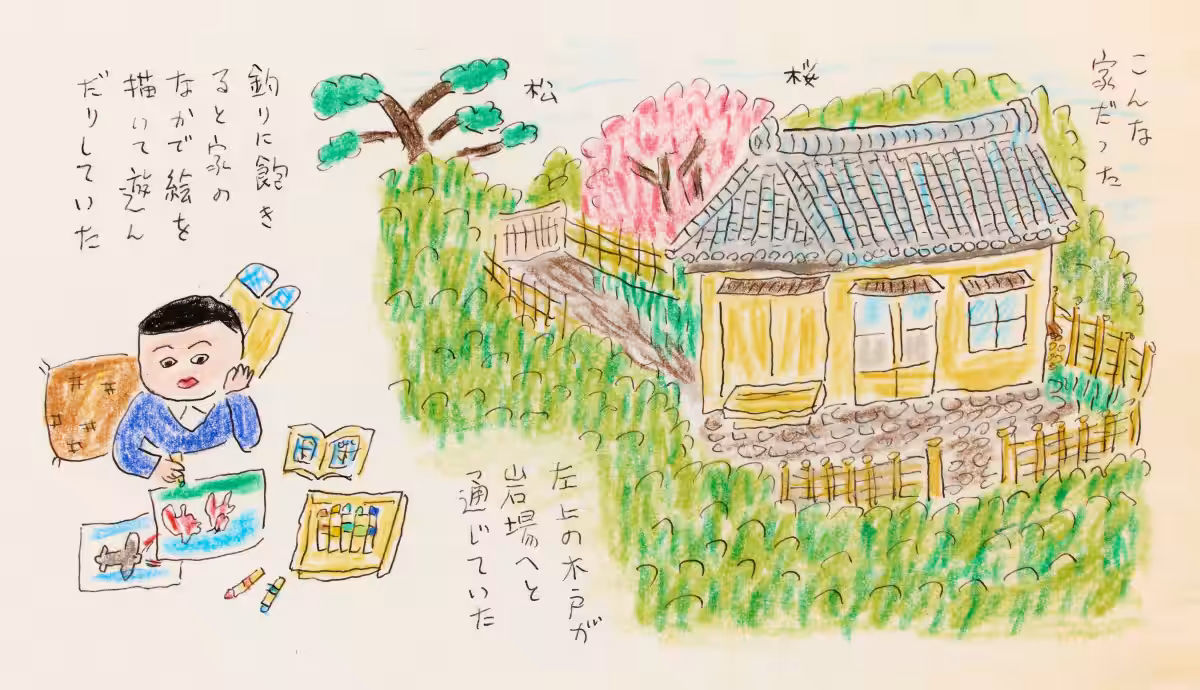 こんな
家だった
桜
松
釣りに飽き
ると家の
なかで絵を
描いて遊ん
だりしていた
左上の木戸が
岩場へと
通じていた